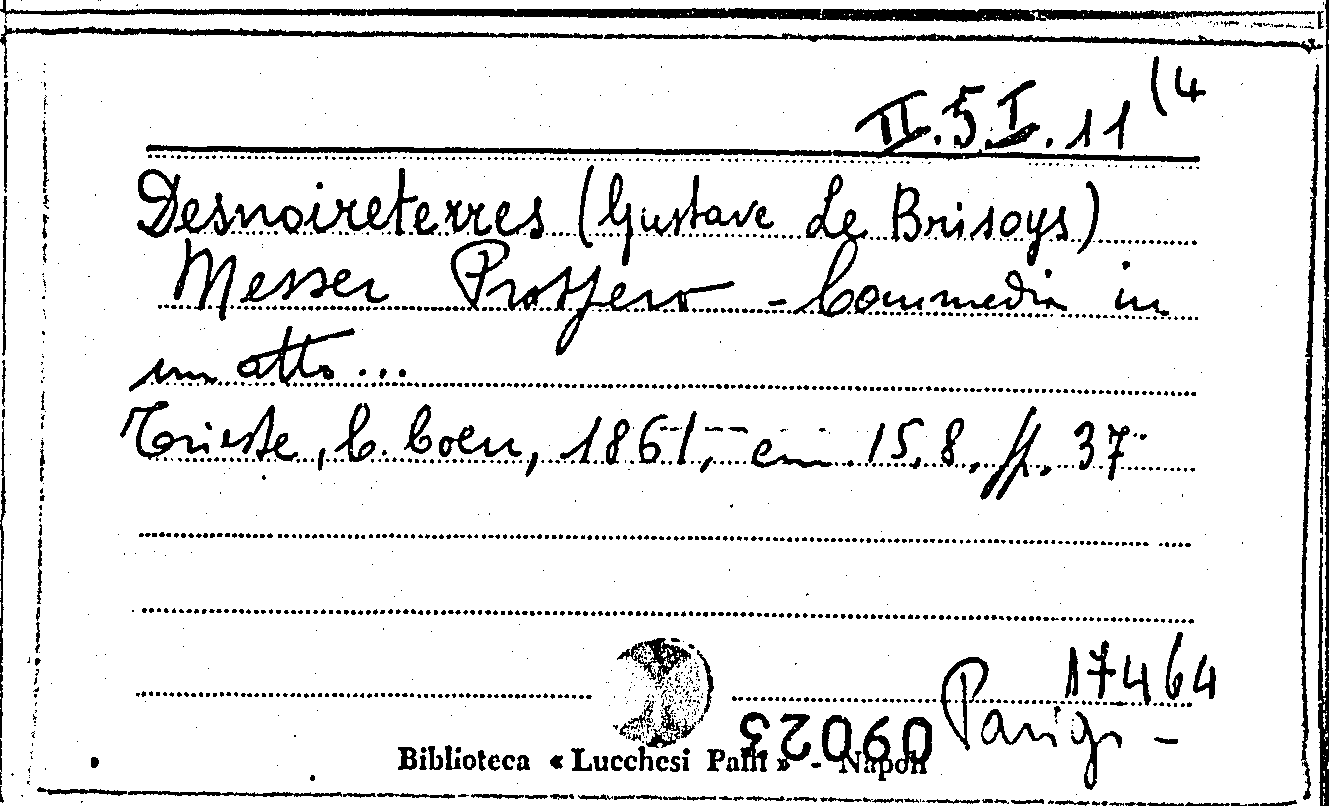 II.5.I.11(4
Desnoireterres (Gustave Le Brisoys)
Messer Prospero - Commedia in
un atto...
Trieste, C. Coen, 1861, cm. 15,8, pp. 37
17464
Parigi -
09023
Biblioteca « Lucchesi Palli » - Napoli